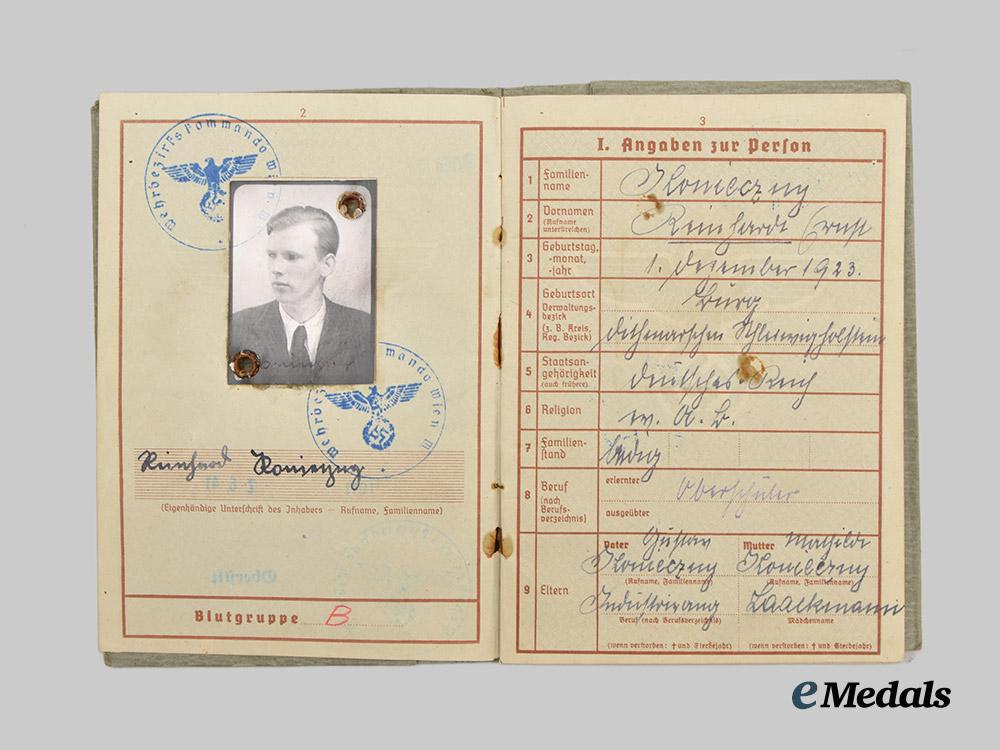 2
Wehrbezirkskommando Wien
Wehrbezirkskommando Wien
Reinhard Konieczny
(Eigenhändige Unterschrift des Inhabers — Rufname, Familienname)
Blutgruppe B
3
I. Angaben zur Person
1 Familien-
name
Konieczny
2 Vornamen
(Rufname
unterstreichen)
Reinhardt Ernst
3 Geburtstag,
-monat,
-jahr
1. Dezember 1923.
4 Geburtsort
Verwaltungs-
bezirk
(z. B. Kreis,
Reg. Bezirk)
Burg
Dithmarschen Schleswigholstein
5 Staatsan-
gehörigkeit
(auch frühere)
deutsches Reich
6 Religion
ev. A. B.
7 Familien-
stand
ledig
8 Beruf
(nach
Berufs-
verzeichnis)
erlernter
Oberschüler
ausgeübter
9 Eltern
Vater Gustav
Konieczny
(Rufname, Familienname)
Beruf (nach Berufsverzeichnis)
(wenn verstorben: † und Sterbejahr)
Mutter Mathilde
Konieczny
(Rufname, Familienname)
Laackmann
Mädchenname
(wenn verstorben: † und Sterbejahr)
eMedals